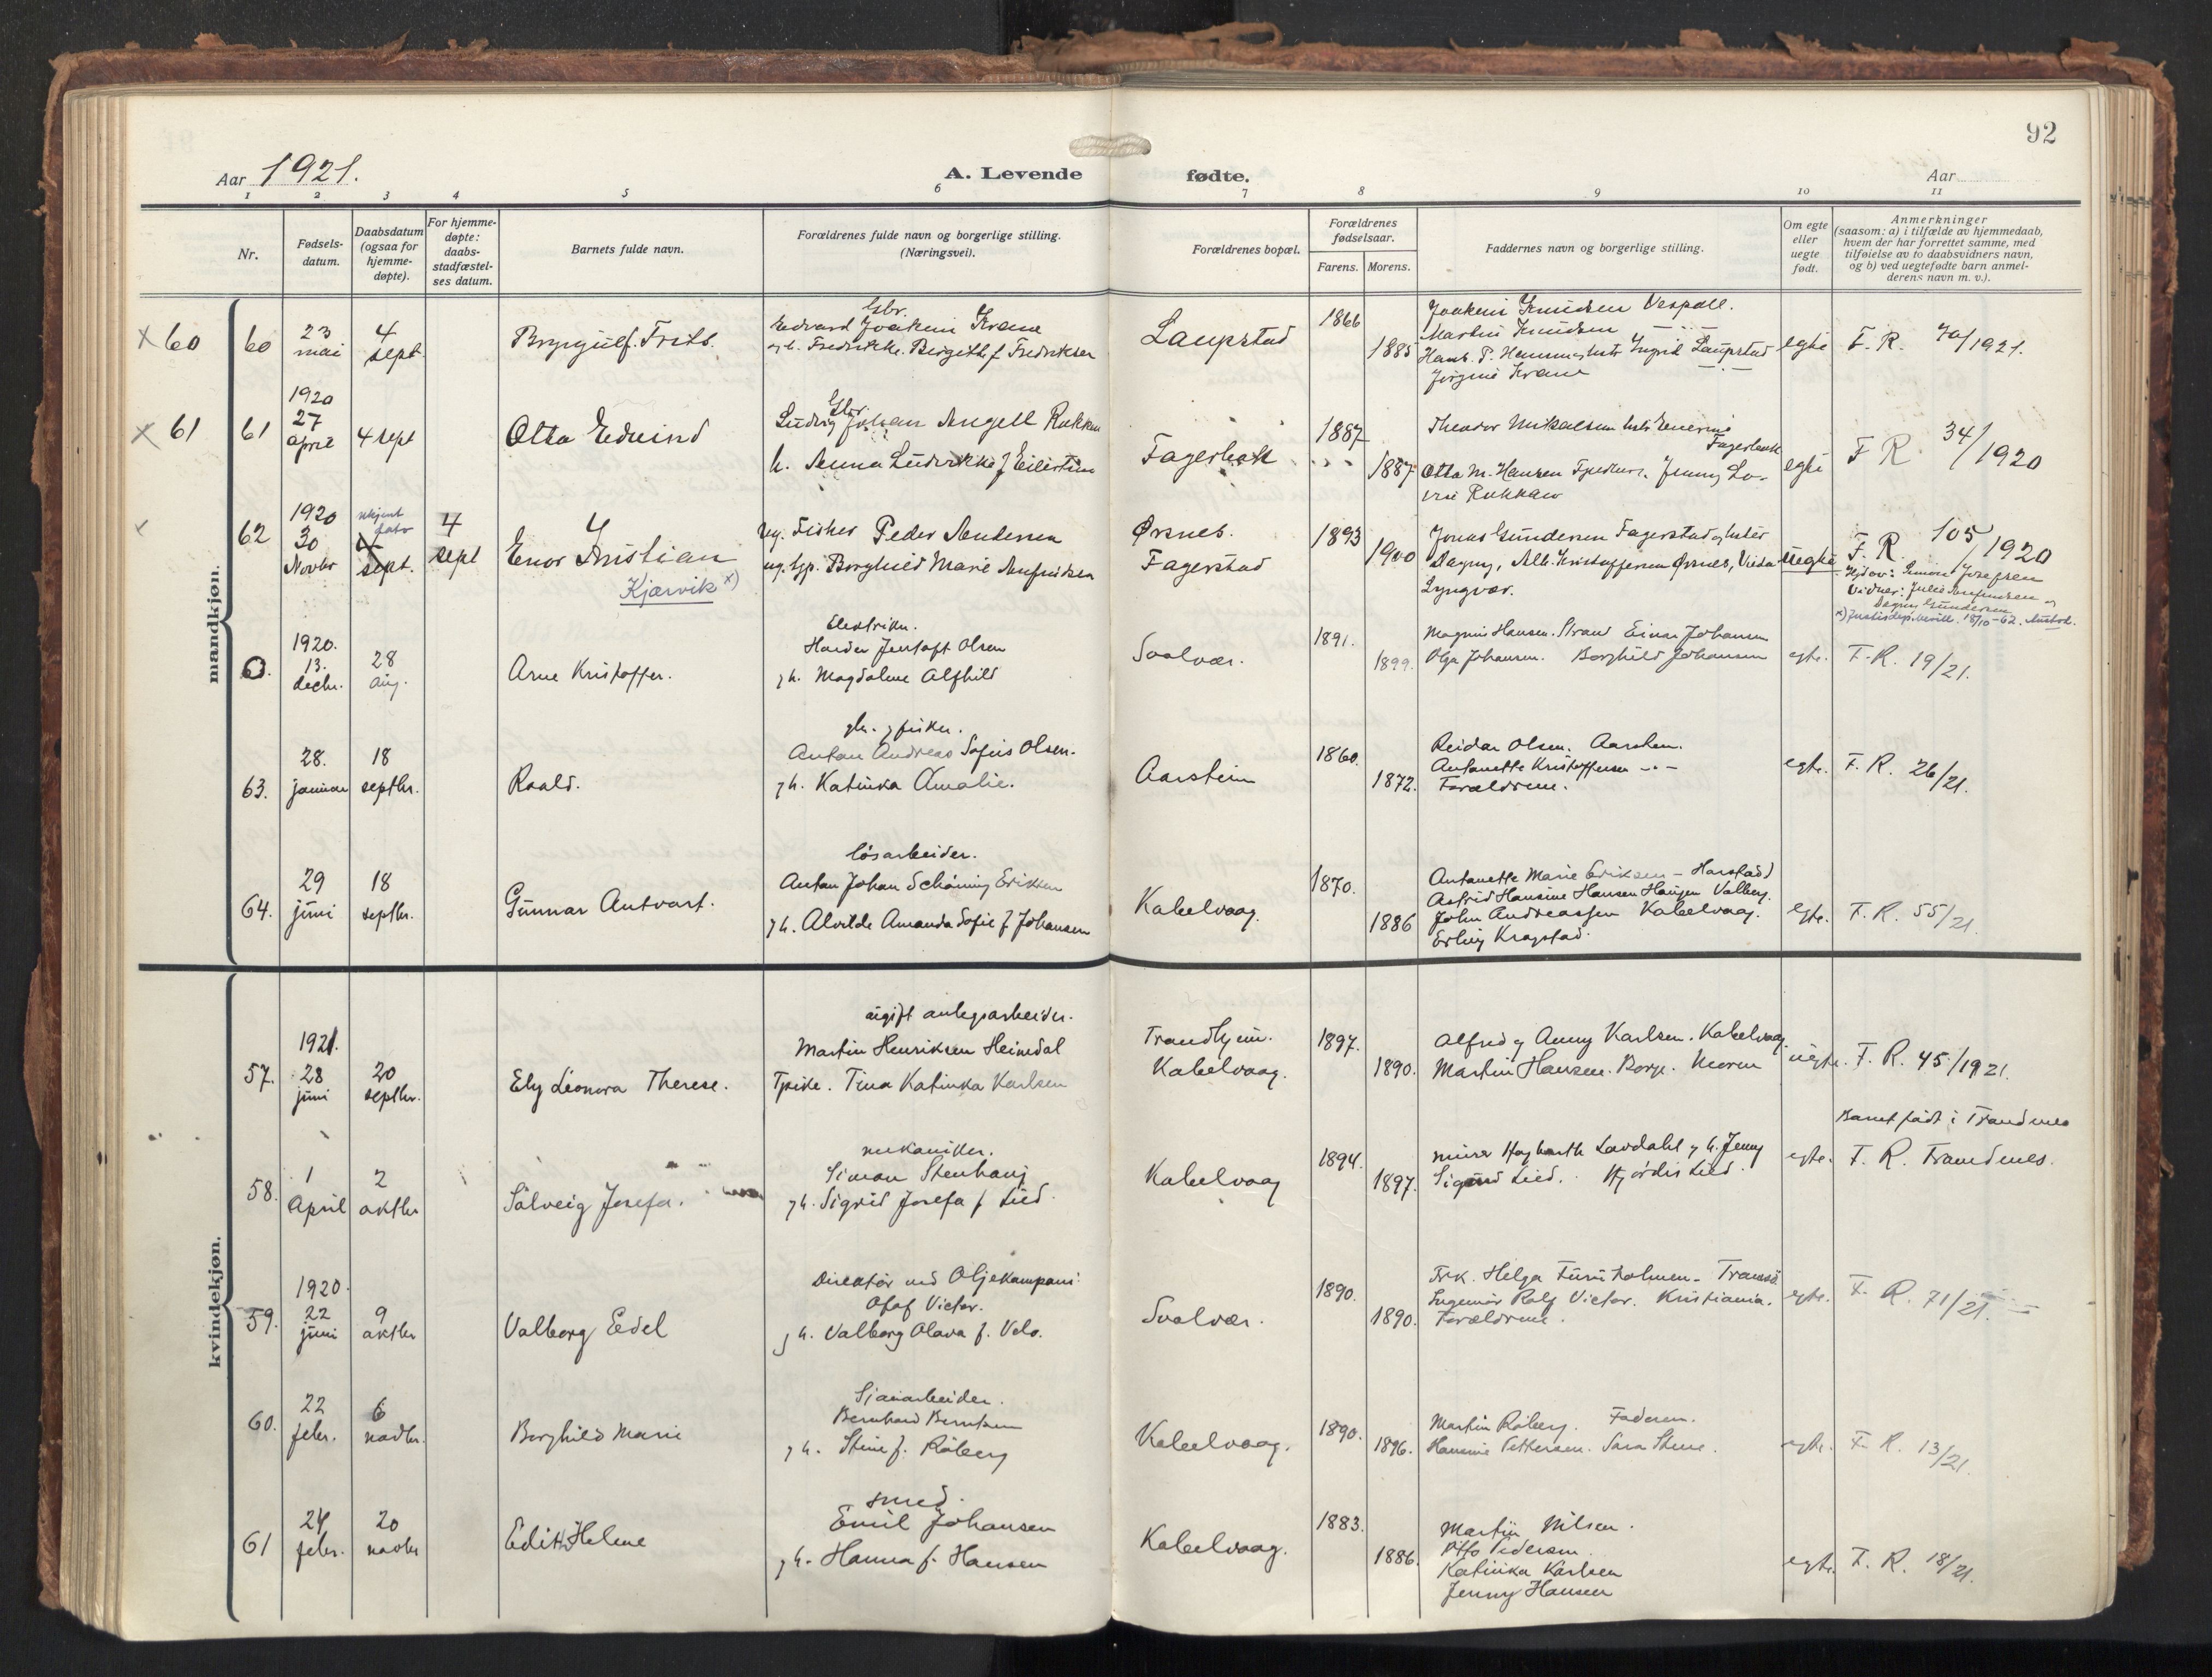 92
Aar 1921.
A. Levende fødte.
Aar
1 2 3 4 5 6 7 8 9 10 11
Nr.
Fødsels-
datum.
Daabsdatum
(ogsaa for
hjemme-
døpte).
For hjemme-
døpte:
daabs-
stadfæstel-
ses datum.
Barnets fulde navn.
Forældrenes fulde navn og borgerlige stilling.
(Næringsvei).
Forældrenes bopæl.
Forældrenes
fødselsaar.
Farens. Morens.
Faddernes navn og borgerlige stilling.
Om egte
eller
uegte
født.
Anmerkninger
(saasom: a) i tilfælde av hjemmedaab,
hvem der har forrettet samme, med
tilføielse av to daabsvidners navn,
og b) ved uegtefødte barn anmel-
derens navn m. v.).
mandkjøn.
x 60
60
23
mai
4
sept.
Gbr.
Edvard Joakim Krane
Laupstad
1866
1885
Martin Knudsen
Ingrid Laupstad
Krane
egte
F. R. 40/1921.
x 61
61
1920
27
april
4 sept
Otto Edvind
Gbr.
Ludvig Johan Angell
1887
1887
Otto M. Hansen
egte
F R 34/1920
x
62
1920
30
Novbr
4
sept.
4
sept
Kristian
Kjærvik x)
ug. Fisker Peder Andersen
ug. Borghild Marie
Ørsnes.
Fagerstad
1893
1900
Jonas Gundersen Fagerstad
Dagny, Alb. Kristoffersen Ørsnes,
Lyngvær.
uegte
F. R. 105/1920
Vidner:
Dagny Gundersen
x) Justisdep. bevill. 18/10-62.
0.
1920.
13.
decbr.
28
aug.
Arne Kristoffer.
Elektriker.
Jentoft Olsen
g h. Magdalene Alfhild
Svolvær.
1891.
1899.
Magnus Hansen. Strand Einar Johansen
Olga Johansen. Borghild Johansen
egte.
F. R. 19/21.
63.
28.
januar
18
septbr.
Roald.
gbr. g fisker.
Anton Andreas Sofus Olsen.
g h. Katinka Amalie.
Aarstein
1860.
1872.
Reidar Olsen. Aarstein.
Antonette Kristoffersen - " -
Forældrene.
egte.
F. R. 26/21.
64.
29
juni
18
septbr.
Gunnar Antvart.
løsarbeider.
Anton Johan Schöning Eriksen
g h. Alvilde Amanda Sofie f Johansen
Kabelvaag.
1870.
1886
Antonette Marie Eriksen - Harstad
Astrid Hansine Hansen Haugen Valberg.
John Andreassen Kabelvaag.
Erling Kragstad.
egte.
F. R. 55/21.
kvindekjøn.
57.
1921.
28
juni
20
septbr.
Ely Leonora Therese.
ugift anlegsarbeider.
Martin Henriksen Heimdal
Tpike. Tina Katinka Karlsen
Trondhjem.
Kabelvaag.
1897.
1890.
Alfred g Anny Karlsen. Kabelvaag.
Martin Hansen. Borge. Moren
uegte.
F. R. 45/1921.
58.
1
April
2
oktbr
Solveig Josefa.
mekaniker.
Simon Stenhaug
g h. Sigrid Josefa f Lied.
Kabelvaag
1894.
1897.
murer Hagbarth Lavdahl g h. Jenny
Sigurd Lied. Hjördis Lied.
egte.
Barnet født i Trondenes
F. R. Trondenes.
59.
1920.
22
juni
9
oktbr
Valborg Edel
Direktör ved Oljekompani
Olaf Victor.
g h. Valborg Olava f. Velo.
Svolvær.
1890.
1890.
Frk. Helga Furuholmen - Tromsö
Ingeniör Rolf Victor. Kristiania.
Forældrene.
egte.
F. R. 71/21.
60.
22
febr.
6
novbr.
Borghild Marie
Sjauarbeider.
Bernhard Berntsen
g h. Stine f. Röberg
Kabelvaag.
1890.
1896.
Martin Röberg. Faderen.
Hansine Pettersen. Sara Stene.
egte.
F. R. 13/21.
61
24
febr.
20
novbr
Edith Helene
smed.
Emil Johansen
g h. Hanna f. Hansen
Kabelvaag.
1883.
1886.
Martin Nilsen.
Otto Pedersen.
Katinka Karlsen
Jenny Hansen
egte.
F. R. 18/21.